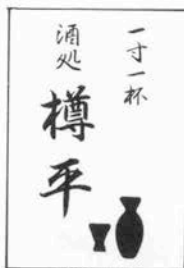 一寸一杯
酒処
樽平